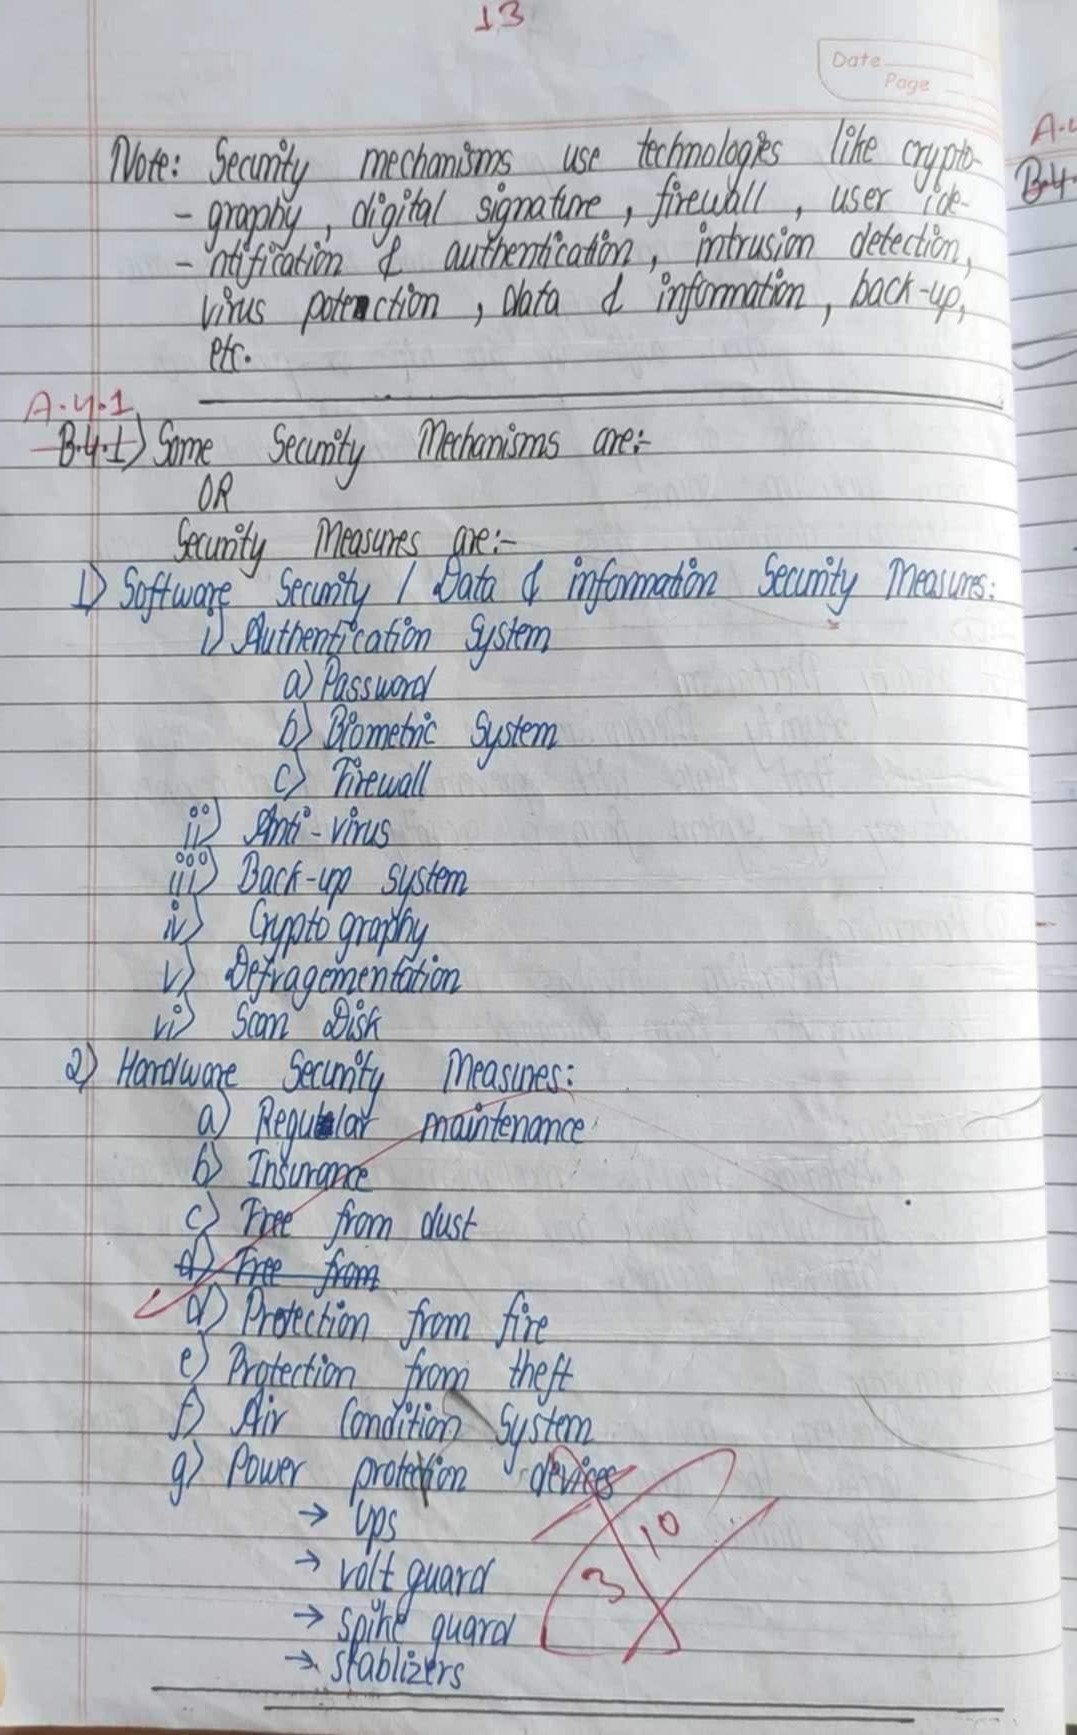 13
Date
Page
Note: Security mechanisms use technologies like crypto-
- graphy, digital signature, firewall, user ide-
- ntification & authentication, intrusion detection,
virus potenction, data & information, back-up,
etc.
A.4.1
B.4.1) Some Security Mechanisms are:-
OR
Security Measures are:-
1) Software Security / Data & information Security Measures:
i) Authentication System
a) Password
b) Biometric System
c) Firewall
ii) Anti-virus
iii) Back-up system
iv) Crypto graphy
v) Defragementation
vi) Scan Disk
2) Hardware Security Measures:
a) Regular maintenance
b) Insurance
c) Free from dust
d) Free from
d) Protection from fire
e) Protection from theft
f) Air Condition System
g) Power protection devices
→ Ups
→ volt guard
→ spike guard
→ stablizers
3 10
A.4
B.4.